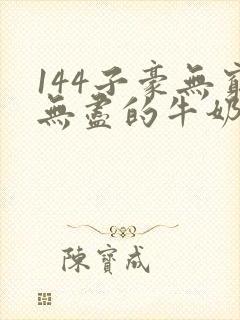 144子豪無窮
無盡的牛奶
陳寶成